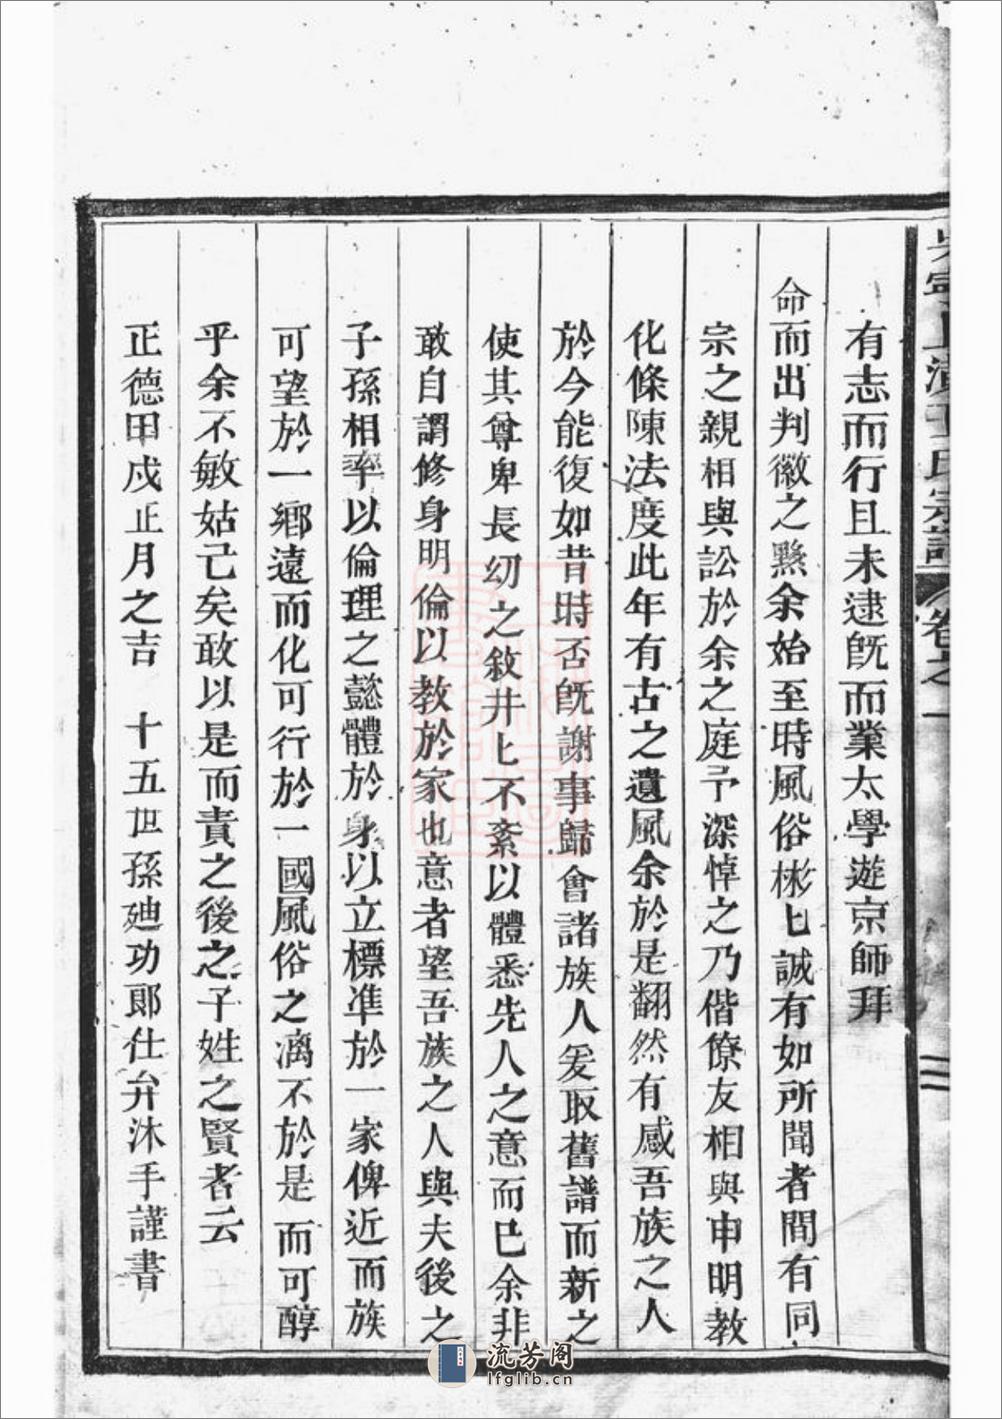 有志而行且未逮旣而業太學遊京師拜
命而出判徽之黟余始至時風俗彬匕誠有如所聞者間有同
宗之親相與訟於余之庭予深悼之乃偕僚友相與申明教
化條陳法度此年有古之遺風余於是翻然有感吾族之人
於今能復如昔時否旣謝事歸會諸族人爰取舊譜而新之
使其尊卑長幼之敘井匕不紊以體悉先人之意而已余非
敢自謂修身明倫以教於家也意者望吾族之人與夫後之
子孫相率以倫理之懿體於身以立標準於一家俾近而族
可望於一鄉遠而化可行於一國風俗之漓不於是而可醇
乎余不敏姑己矣敢以是而責之後之子姓之賢者云
正德甲戌正月之吉 十五世孫廸功郞仕弁沐手謹書
氏宗譜 卷之一
流芳阁
lfglib.cn